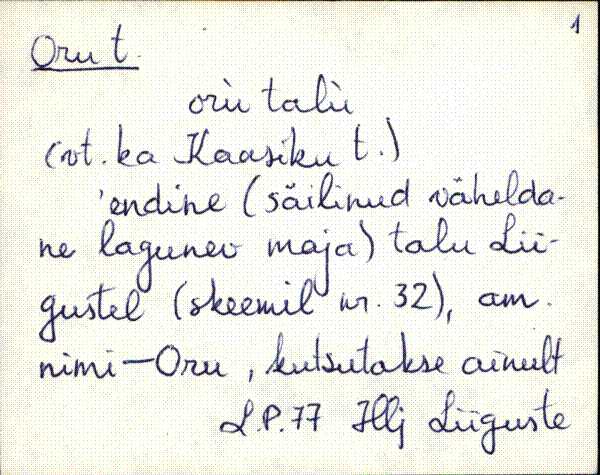 1
Oru t.
orù talù
(vt. ka Kaasiku t.)
'endine (säilinud vähelda-
ne lagunev maja) talu Lii-
gustel (skeemil nr. 32), am.
nimi—Oru, kutsutakse ainult
L.P.77 Hlj Liiguste